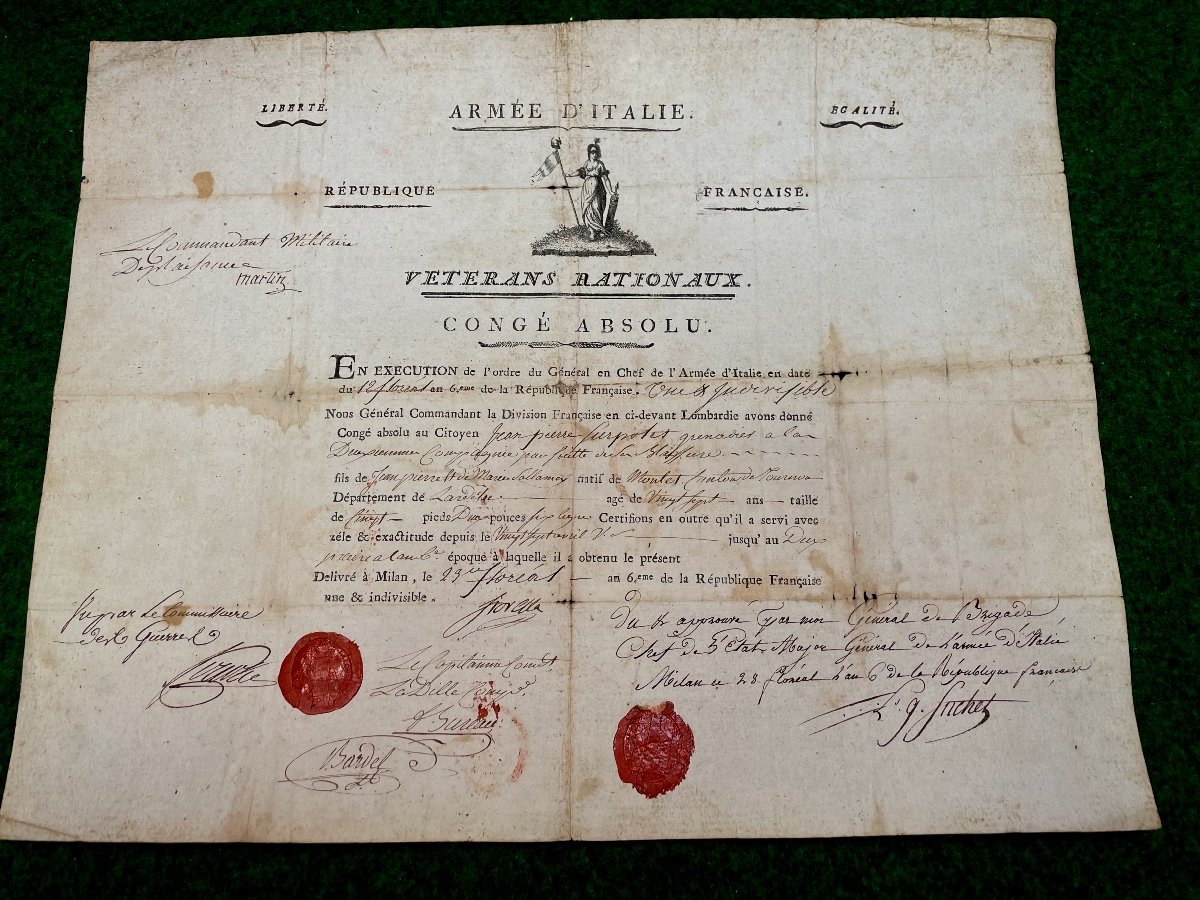 LIBERTÉ.
ARMÉE D'ITALIE.
EGALITÉ.
RÉPUBLIQUE
FRANCAISE.
Le Commandant Militaire
De plaisance
martin
VETERANS NATIONAUX.
CONGÉ ABSOLU.
EN EXECUTION de l'ordre du Général en Chef de l'Armée d'Italie en date
du 12 floreal an 6.eme de la République Française. Une &
Nous Général Commandant la Division Française en ci-devant Lombardie avons donné
Congé absolu au Citoyen Jean pierre Surpolet grenadier a la
Deuxieme Compagnie par suitte de Sa Blessure
fils de Jean pierre & de Marie natif de Canton de Tournon
Département de Lardeche agé de Vingt Sept ans taille
de Cinq pieds Deux pouces Certifions en outre qu'il a servi avec
zéle & exactitude depuis le Vingt Sept avril jusqu'au
prairial an 6.e époque à laquelle il a obtenu le présent
Delivré à Milan, le floréal an 6.eme de la République Française
une & indivisible.
Vu par Le Commissaire
des Guerres
Le Capitaine
Bardel
Vu & approuvé par moi Général de Brigade
Chef de l'Etat Major Général de l'armée D'Italie
Milan ce 28 floréal L'an 6 de la République française